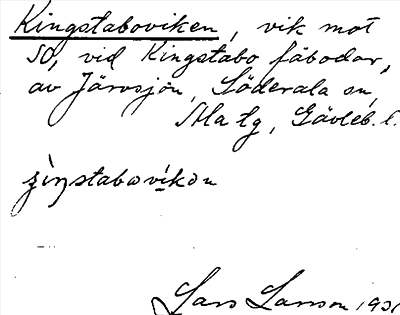 Kingstaboviken, vik mot
SO, vid Kingstabo fäbodar,
av Järvsjön, Söderala sn,
Ala tg, Gävleb. l.
ʒiŋstabovikən
Lars Larsson 193